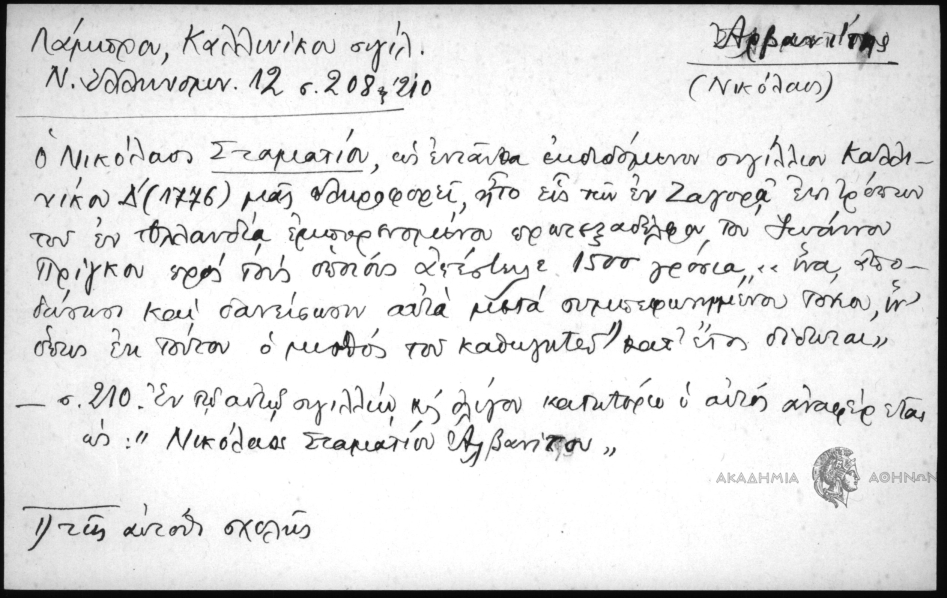 Λάμπρου, Καλλινίκου σιγίλ.
Ν. Ελληνομν. 12 σ. 208 ξ 210
Ἀρβανίτης
(Νικόλαος)
ὁ Νικόλαος Σταματίου, ὡς ἐνταῦθα ἐκδιδόμενον σιγίλλιον Καλλι-
νίκου Δ' (1776) μᾶς πληροφορεῖ, ἦτο εἷς τῶν ἐν Ζαγορᾷ ἐπιτρόπων
τοῦ ἐν Ὁλλανδίᾳ ἐμπορευομένου πρωτεξαδέλφου του Ἰωάννου
Πρίγκου πρὸς τοὺς ὁποίους ἀπέστειλε 1500 γρόσια, "ἵνα, ἀπο-
δώσωσι καὶ δανείσωσιν αὐτὰ μετὰ συμπεφωνημένου τόκου, ἵν'
οὕτως ἐκ τούτου ὁ μισθὸς τοῦ καθηγητοῦ 1) κατ' ἔτος δίδωται„
— σ. 210. Ἐν τῷ αὐτῷ σιγιλλίῳ καὶ ὀλίγον κατωτέρω ὁ αὐτὸς ἀναφέρεται
ὡς: " Νικόλαος Σταματίου Ἀλβανίτου „
ΑΚΑΔΗΜΙΑ ΑΘΗΝΩΝ
1) τῆς αὐτόθι σχολῆς